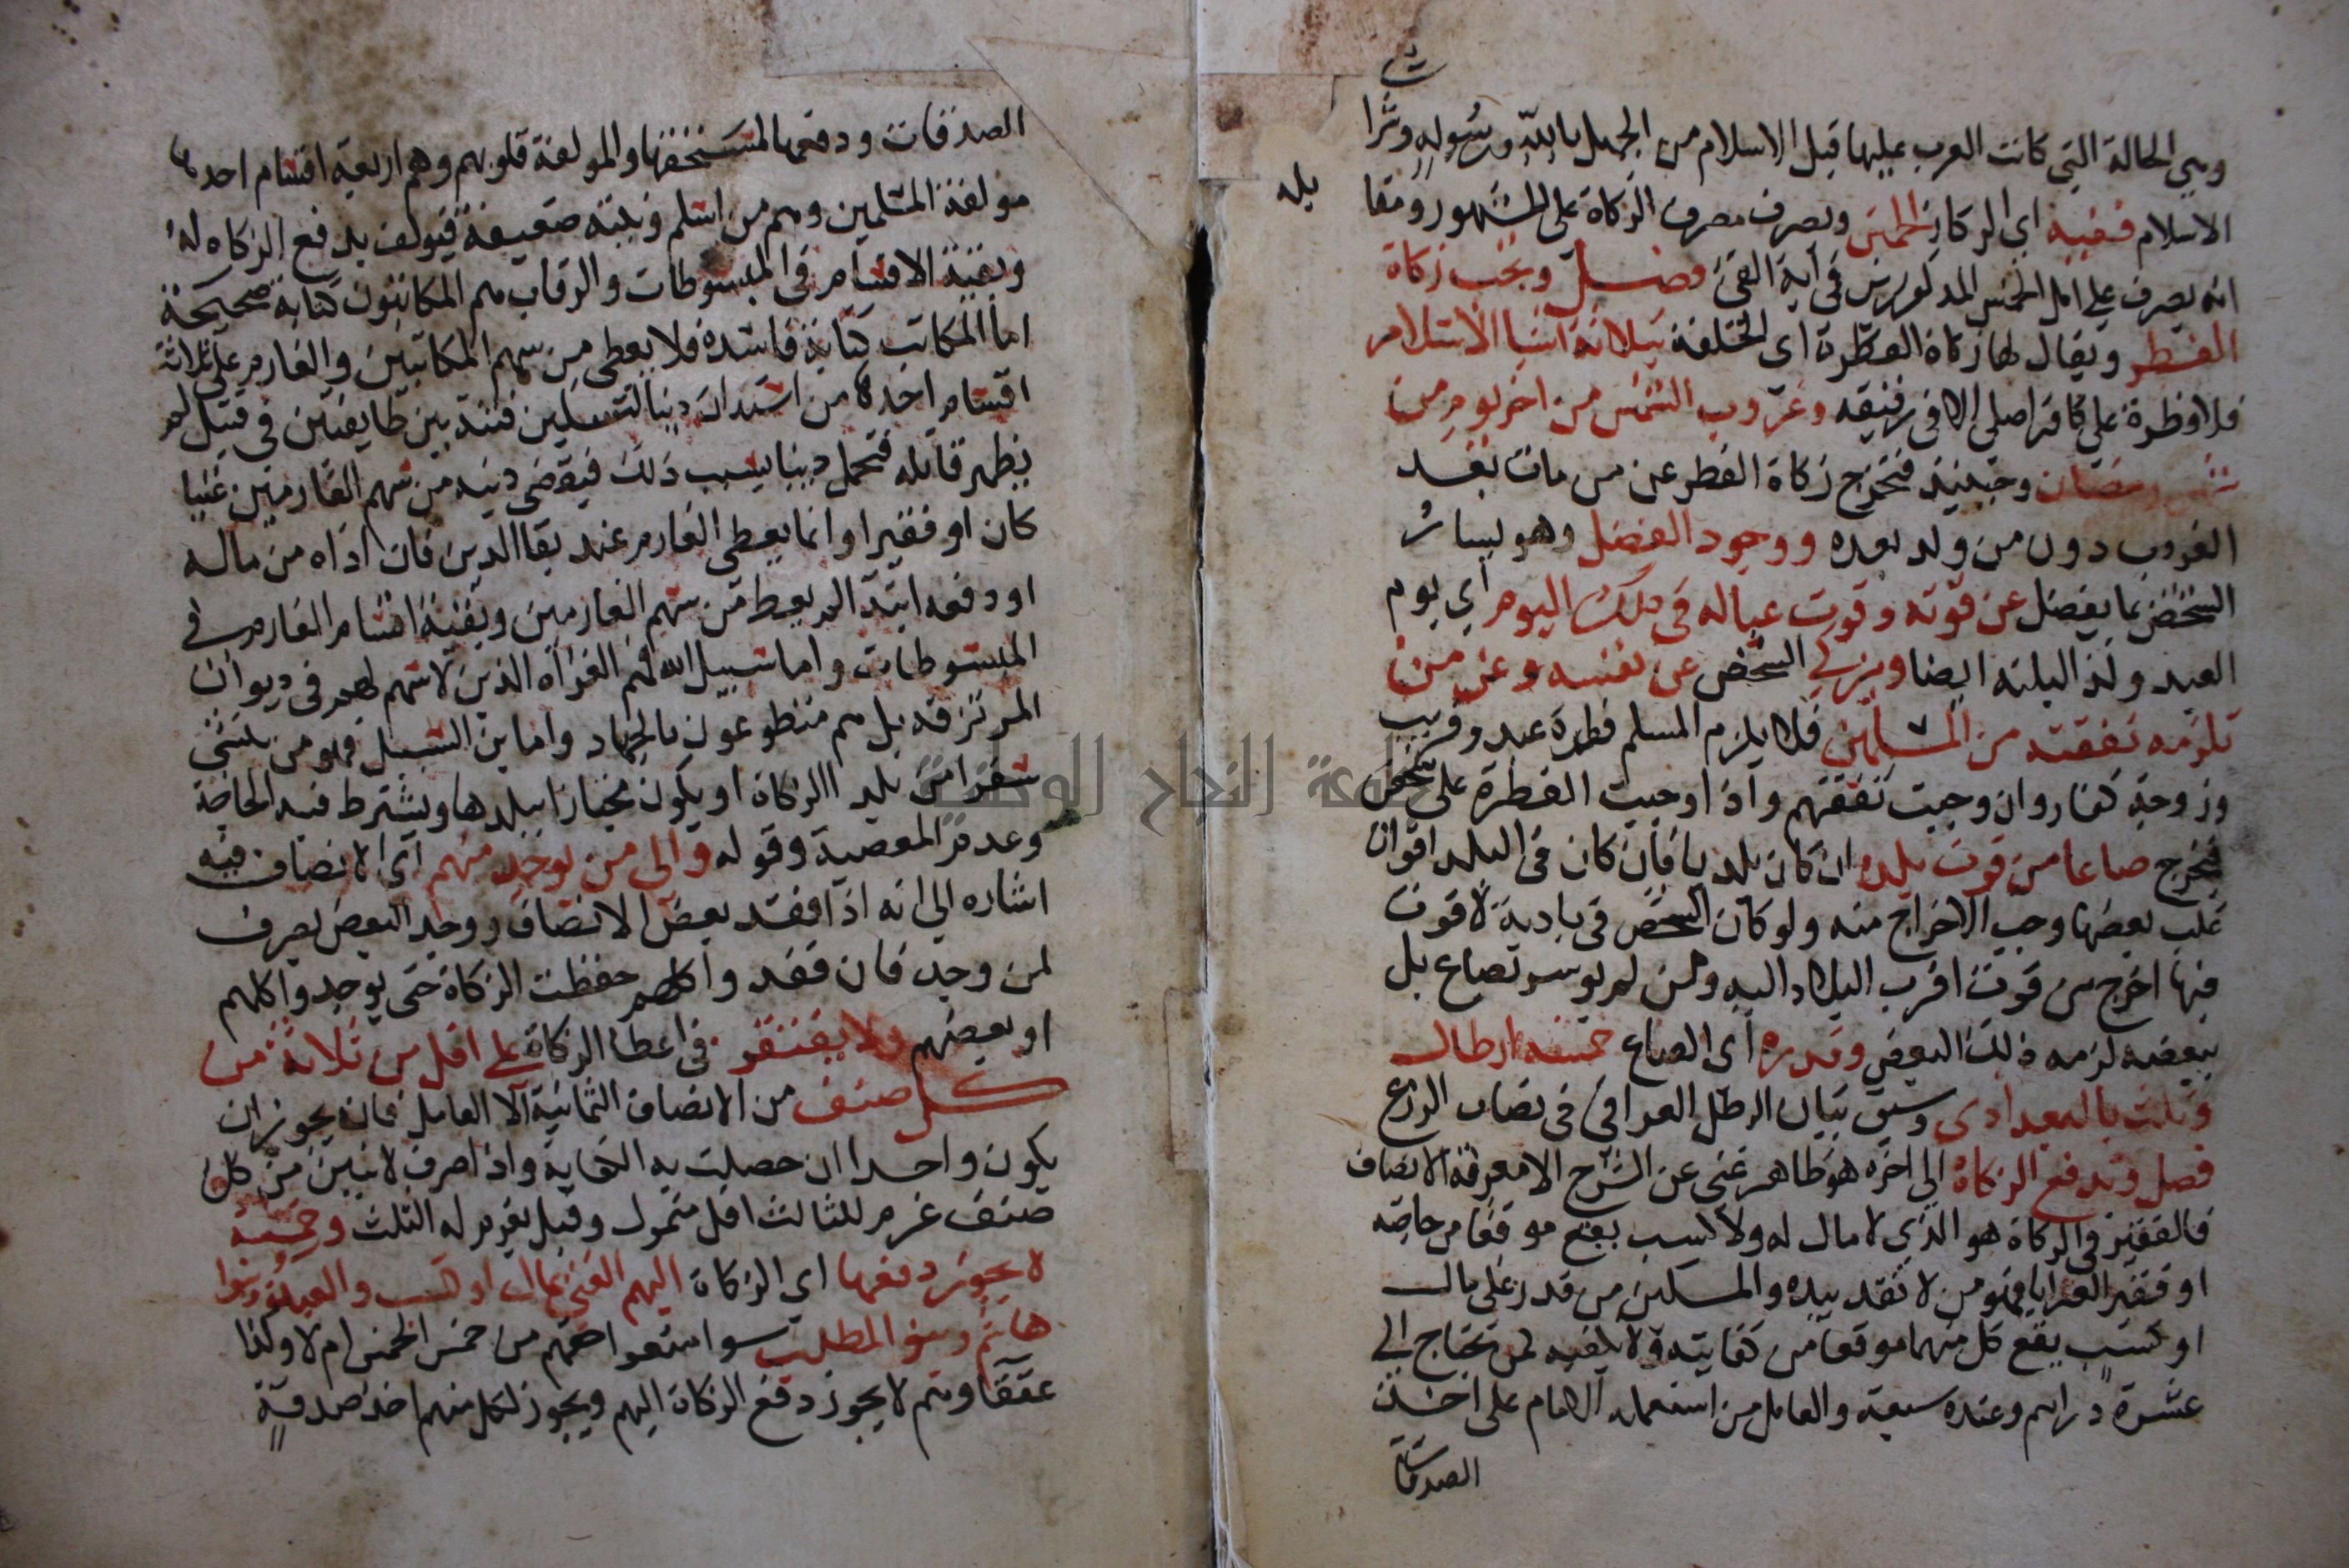 وهي الحالة التي كانت العرب عليها قبل الاسلام من الجهل بالله ورسوله وشرا
يع
الاسلام ففيه اي الركاز الخمس ويصرف مصرف الزكاة على المشهور ومقا
بله
انه يصرف على اهل الخمس المذكورين في آية الفئ فصل وتجب زكاة
الفطر ويقال لها زكاة الفطرة اي الخلقة بثلاثة اشيا الاسلام
فلا فطرة على كافر اصلي الا في رقيقه وغروب الشمس من اخر يوم من
شهر رمضان وحينئذ فتخرج زكاة الفطر عن من مات بعد
الغروب دون من ولد بعده ووجود الفضل وهو يسار
الشخص بما يفضل عن قوته وقوت عياله في ذلك اليوم اي يوم
العيد وكذا ليلته ايضا ويزكي الشخص عن نفسه وعن من
تلزمه نفقته من المسلمين فلا يلزم المسلم فطرة عبد وقريب
وزوجة كفار وان وجبت نفقتهم واذا وجبت الفطرة على شخص
فيخرج صاعا من قوت بلده ان كان بلديا فان كان في البلد اقوات
غلب بعضها وجب الاخراج منه ولو كان الشخص في بادية لا قوت
فيها اخرج من قوت اقرب البلاد اليه ومن لم يوسر بصاع بل
ببعضه لزمه ذلك البعض وقدره اي الصاع خمسة ارطال
وثلث بالبغدادي وسبق بيان الرطل العراقي في نصاب الزرع
فصل وتدفع الزكاة الى اخره هو ظاهر غني عن الشرح الا معرفة الاصناف
فالفقير في الزكاة هو الذي لا مال له ولا كسب يقع موقعا من حاجته
او فقير العرايا فهو من لا نقد بيده والمسكين من قدر على مال
او كسب يقع كل منهما موقعا من كفايته ولا يكفيه كمن يحتاج الى
عشرة دراهم وعنده سبعة والعامل من استعمله الامام على اخذ
الصدقات
الصدقات ودفعها لمستحقها والمولفة قلوبهم وهم اربعة اقسام احدها
مولفة المسلمين وهم من اسلم ونيته ضعيفة فيولف بدفع الزكاه له
وبقية الاقسام في المبسوطات والرقاب هم المكاتبون كتابة صحيحة
اما المكاتب كتابة فاسدة فلا يعطى من سهم المكاتبين والغارم على ثلاثة
اقسام احدها من استدان دينا لتسكين فتنة بين طايفتين في قتيل لم
يظهر قاتله فتحمل دينا بسبب ذلك فيقضى دينه من سهم الغارمين غنيا
كان او فقيرا وانما يعطى الغارم عند بقا الدين فان اداه من ماله
او دفعه ابتدآ لم يعط من سهم الغارمين وبقية اقسام الغارم في
المبسوطات واما سبيل الله فهم الغزاة الذين لا سهم لهم في ديوان
المرتزقة بل هم متطوعون بالجهاد واما ابن السبيل فهو من ينشئ
سفرا من بلد الزكاة او يكون مجتازا ببلدها ويشترط فيه الحاجة
وعدم المعصية وقوله والى من يوجد منهم اي الاصناف فيه
اشاره الى انه اذا فقد بعض الاصناف ووجد البعض يصرف
لمن وجد فان فقدوا كلهم حفظت الزكاة حتى يوجدوا كلهم
او بعضهم ولا يقتصر في اعطا الزكاة على اقل من ثلاثة من
كل صنف من الاصناف الثمانية الا العامل فانه يجوز ان
يكون واحدا ان حصلت به الكفاية واذا صرف لاثنين من كل
صنف غرم للثالث اقل متمول وقيل يغرم له الثلث وخمسة
لا يجوز دفعها اي الزكاة اليهم الغني بمال او كسب والعبد وبنوا
هاشم وبنو المطلب سوا منعوا حقهم من خمس الخمس ام لا وكذا
عتقاوهم لا يجوز دفع الزكاة اليهم ويجوز لكل منهم اخذ صدقة
جامعة النجاح الوطنية